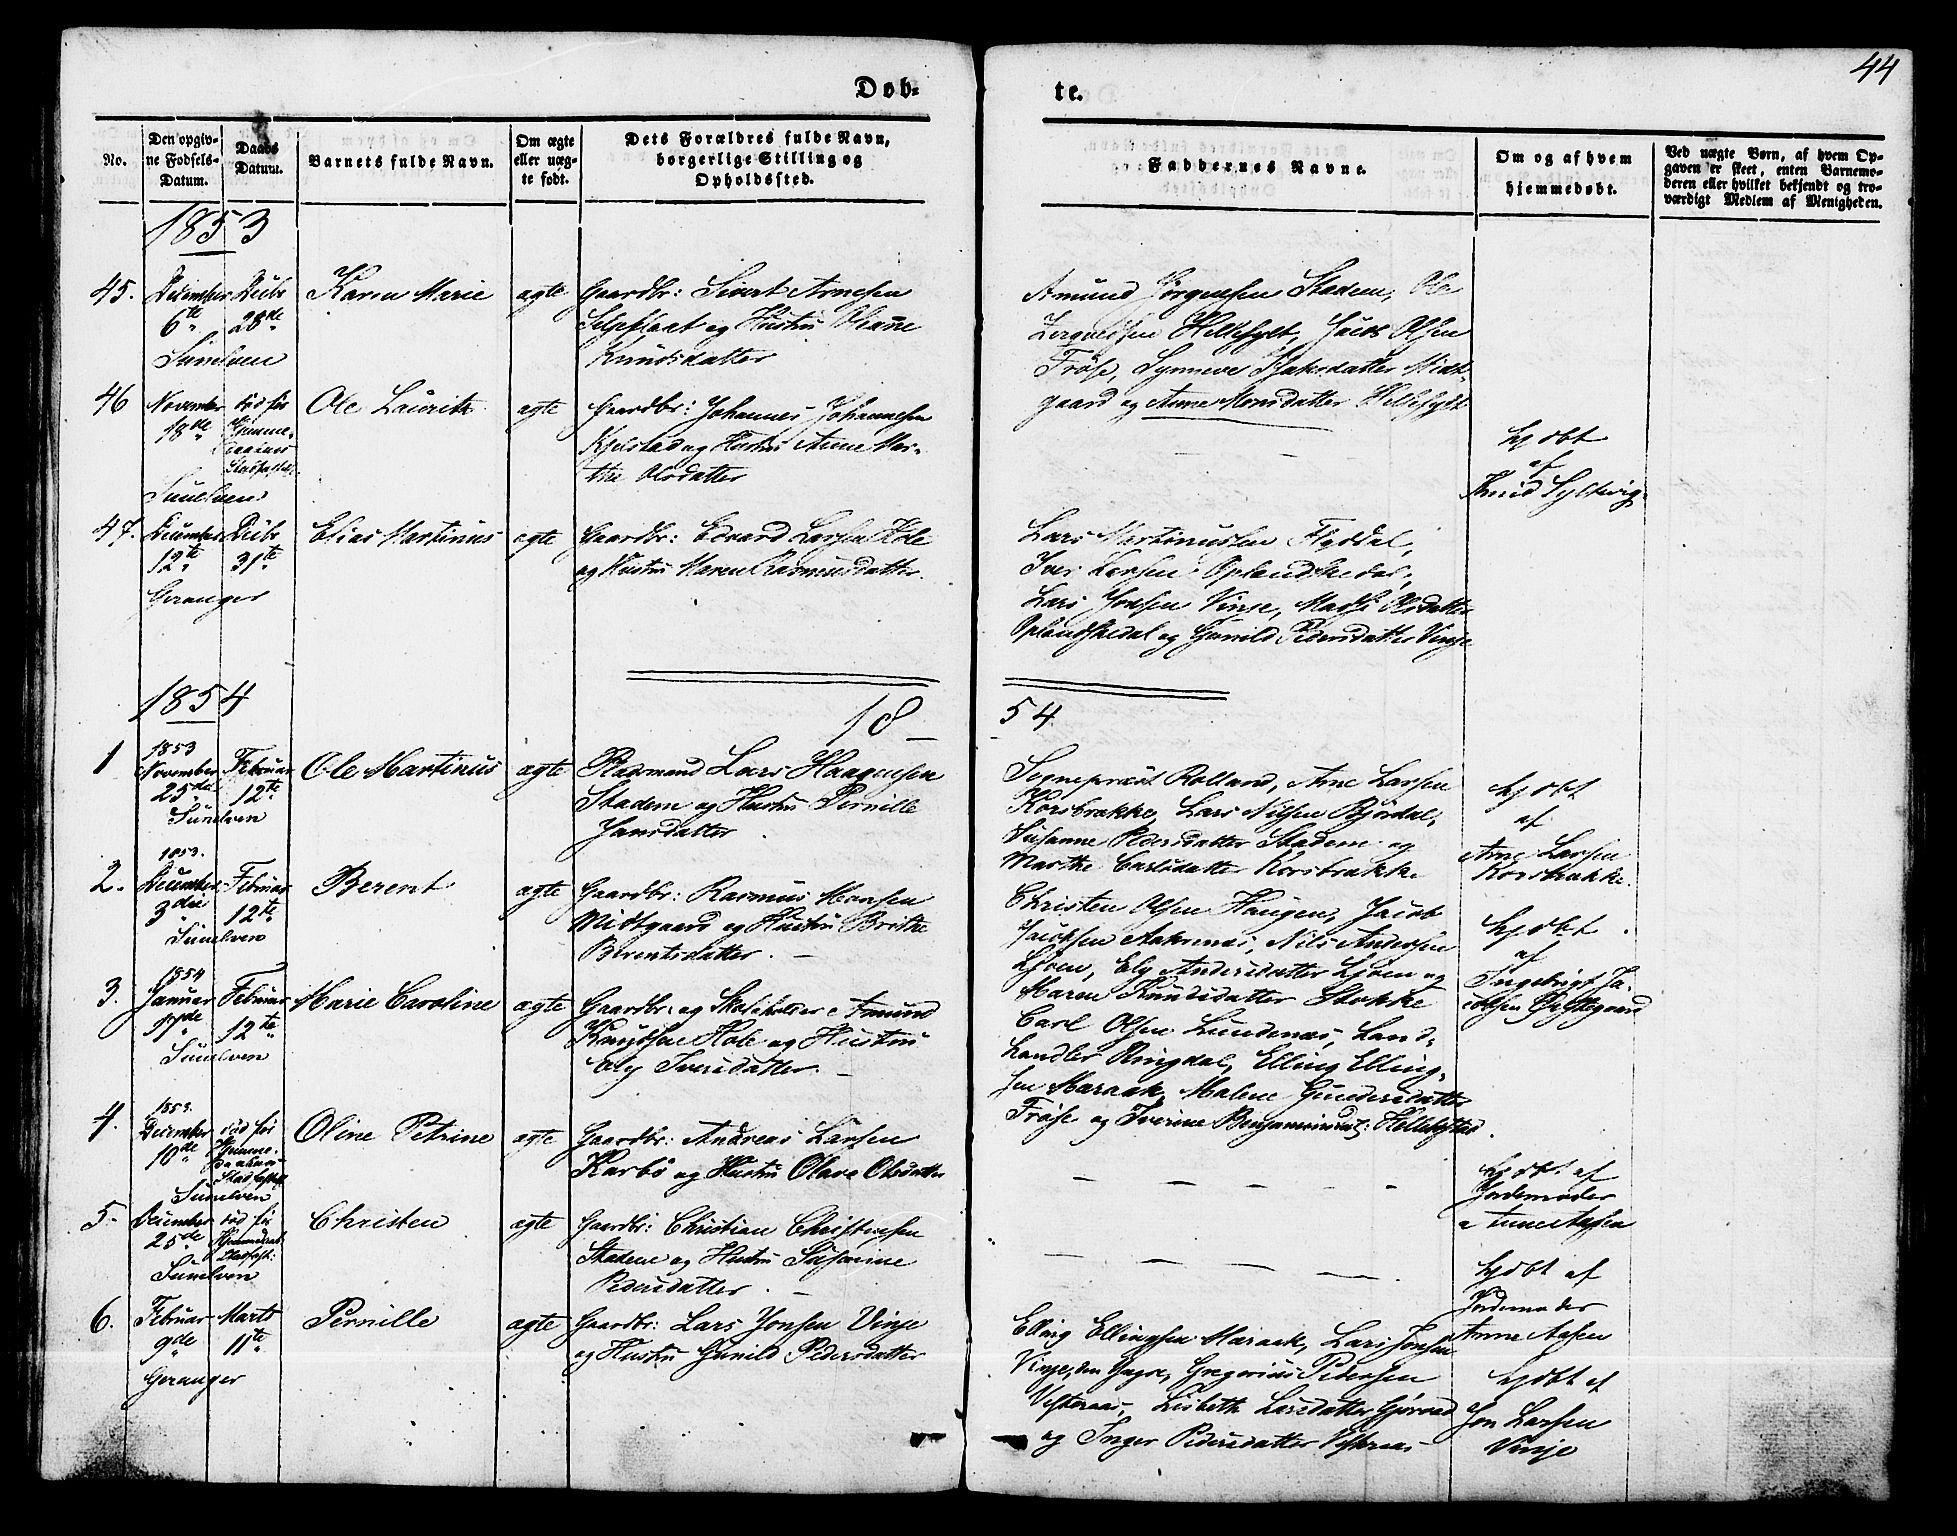 44
Døb-
te.
No.
Den opgiv-
ne Fødsels-
Datum.
Daabs
Datum.
Barnets fulde Navn.
Om ægte
eller uæg-
te født.
Dets Forældres fulde Navn,
borgerlige Stilling og
Opholdssted.
Faddernes Navne.
Om og af hvem
hjemmedøbt.
Ved uægte Børn, af hvem Op-
gaven er skeet, enten Barnemo-
deren eller hvilket bekjendt og tro-
værdigt Medlem af Menigheden.
1853
45.
December
6te
Sunelven
Decbr
28de
Karen Marie
ægte
Gaardbr: Sivert Arnesen
og Hustru Oliane
Knudsdatter
Amund Jørgensen Stadem, Ole
Hellesylt, Jacob Olsen
Frøse, Synneve
gaard og Anne Monsdatter Hellesylt
46
November
18de
Sunelven
død før
Hjemme-
daabens
Stadfæstelse
Ole Lauritz
ægte
Gaardbr: Johannes Johannesen
Kjelstad og Hustru Anne Mar-
the Olsdatter
hjdøbt
af
Knud Syltevig
47.
December
12te
Geranger
Decbr
31te
Elias Martinus
ægte
Gaardbr: Edvard Larsen Hole
og Hustru Maren Rasmusdatter.
Lars Martinussen Flyddal,
Iver Larsen Oplandskedal,
Lars Jonsen Vinje, Olsdatter
Oplandskedal og Gunild Pedersdatter Vinje
1854
18 54.
1
1853
November
25de
Sunelven
Februar
12te
Ole Martinus
ægte
Pladsmand Lars Haagensen
Stadem og Hustru Pernille
Jansdatter
Sognepræst Rolland, Arne Larsen
Korsbrække, Lars Nilsen Bjørdal,
Susanne Pedersdatter Stadem og
Marthe Carlsdatter Korsbrække
hjdøbt
af
Arne Larsen
Korsbrække.
2.
1853.
December
3die
Sunelven
Februar
12te
Berent
ægte
Gaardbr: Rasmus Monsen
Midtgaard og Hustru Brithe
Berentsdatter.
Christen Olsen Haugen, Jacob
Jacobsen Aakernes, Nils Andersen
Ljøen, Ely Andersdatter Ljøen og
Maren Knudsdatter Stokke
hjdøbt
af
Ingebrigt Ja-
cobsen
3.
1854
Januar
17de
Sunelven
Februar
12te
Marie Caroline
ægte
Gaardbr. og Skoleholder Amund
Knudsen Hole og Hustru
Ely Iversdatter.
Carl Olsen Lundenæs, Land-
handler Ringdal, Elling Elling-
sen Maraak, Malene Gundersdatter
Frøse og Iverine Benjaminsdt:
4.
1853.
December
10de
Sunelven
død før
Hjemme-
daabens
Stadfæstelse
Oline Petrine
ægte
Gaardbr: Andreas Larsen
Karbø og Hustru Olave Olsdatter
hjdøbt af
Jordemoder
Anne Aasen
5.
December
25de
Sunelven
død før
Hjemmedaab.
Stadfæst:
Christen
ægte
Gaardbr: Christian Christensen
Stadem og Hustru Susanne
Pedersdatter.
hjdøbt af
Jordemoder
Anne Aasen
6.
Februar
9de
Geranger
Marts
11te
Pernille
ægte
Gaardbr: Lars Jonsen Vinje
og Hustru Gunild Pedersdatter
Elling Ellingsen Maraak, Lars Jonsen
Vinje, den Yngre, Gregorius Pedersen
Vesteraas, Lisbeth Larsdatter Gjørved
og Inger Pedersdatter Vesteraas
hjdøbt af
Jon Larsen
Vinje